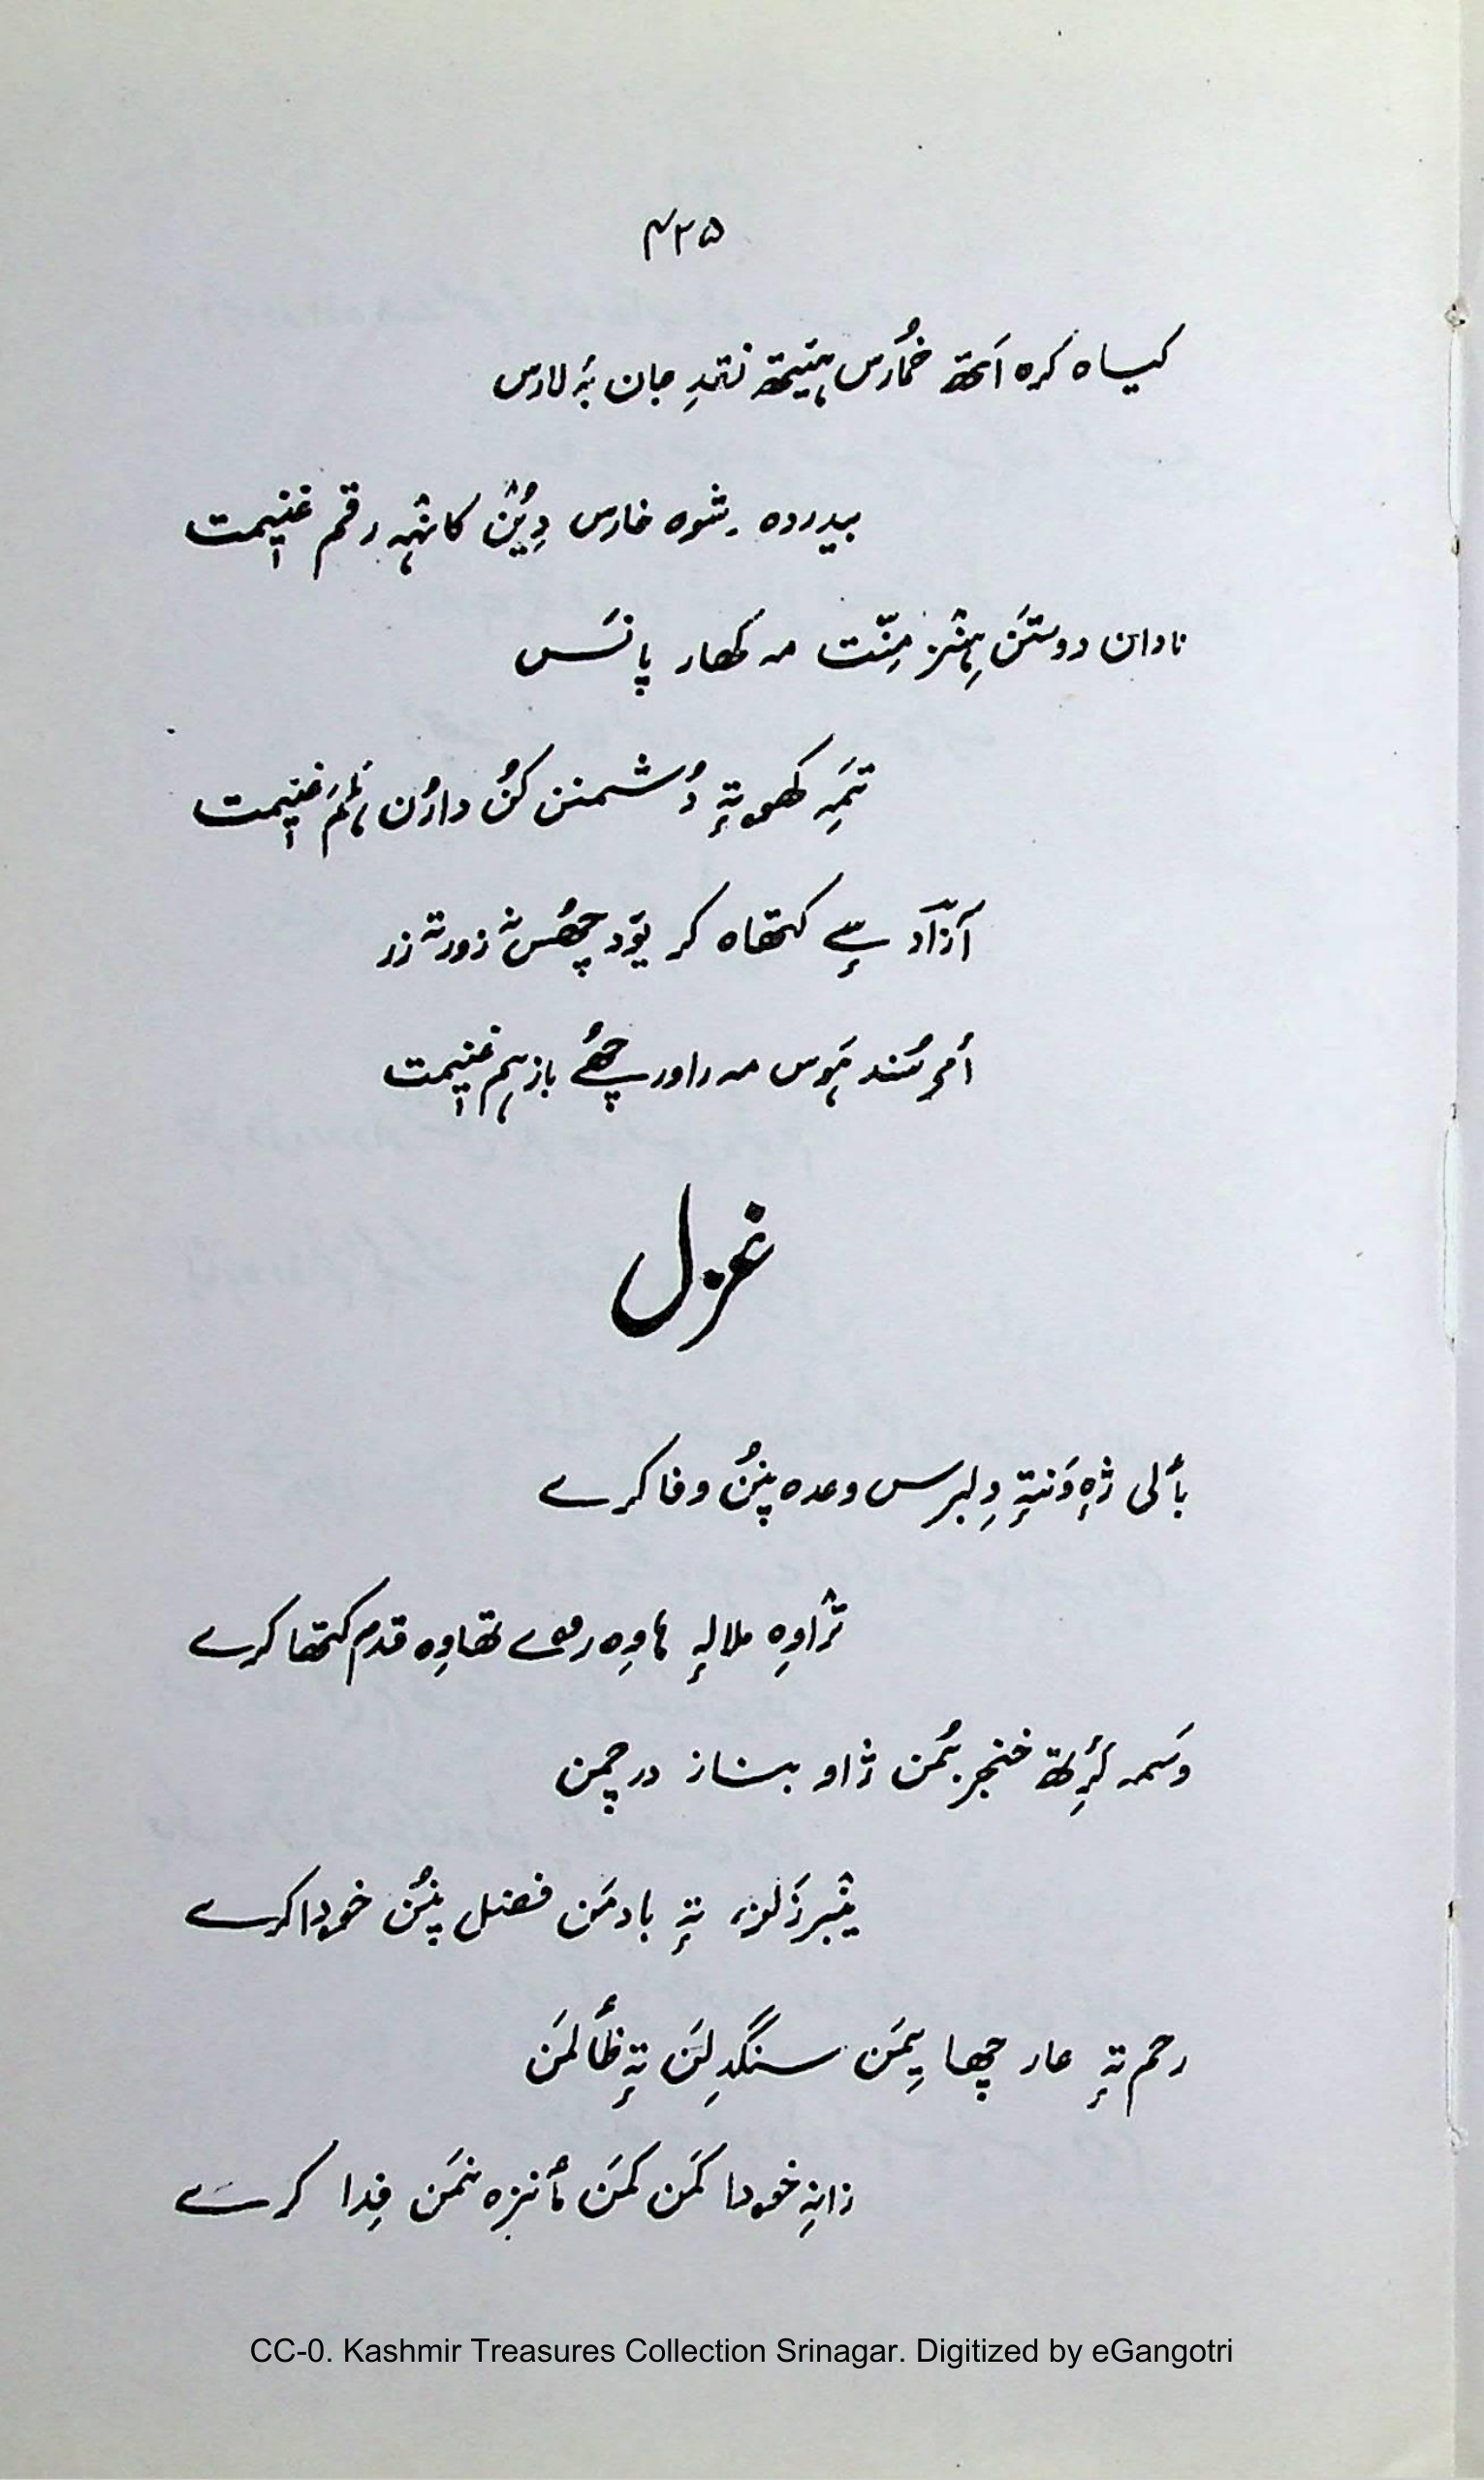 ۴۲۵
کیساہ کرہ اَتھ خمُارس ہیٚتھ نقدِ جان بہٕ لارس
بیدردہ رشوہ خارس دِیُٛن کانٛہہ رقم غنیٖمت
نادان دوستَن ہِنٛز مِنّت مہ کھار پانَس
تَمِہ کھوتہٕ دُشمنن کُن دارُن ہلَم غنیٖمت
آزادؔ سٕے کتھاہ کر یوٚد چھُس نہ زور تہ زر
أمۍ سُند ہَوس مہ راور چھُے باز ہم غنیٖمت
غزل
بألی ژٕہ وَنتہٕ دِلبرس وعدہ پنُن وفا کرے
ترٛاوِہ ملالہٕ ہاوِہ روے تھاوِہ قدم کتھا کرے
وَسمہ کٔرِتھ خنجر بُمن ژاو بناز در چمن
ینٛبرزَلوو تہٕ بادمَن فضل پنُن خودا کرے
رحم تہٕ عار چھا یِمَن سنگدِلَن تہٕ ظٲلمَن
زانہِ خودا کمَن کمَن مأنزہ نمَن فِدا کرے
CC-0. Kashmir Treasures Collection Srinagar. Digitized by eGangotri